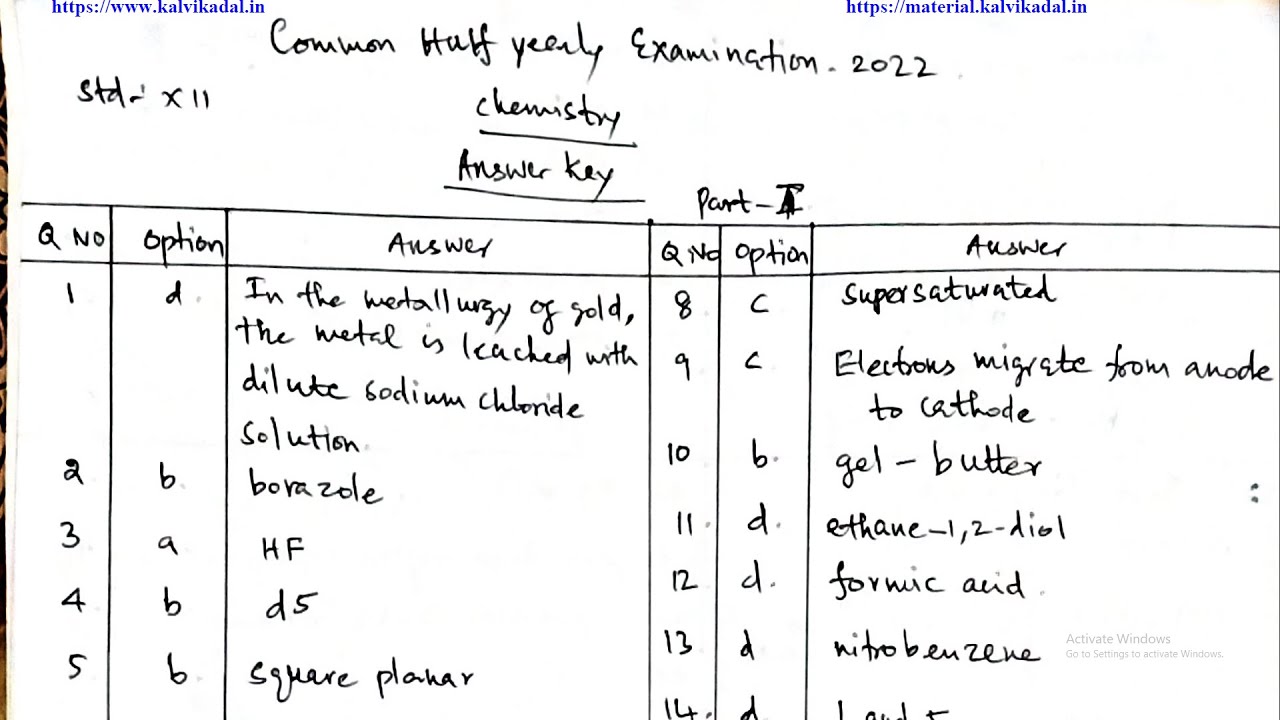 https://www.kalvikadal.in
https://material.kalvikadal.in
Common Half yearly Examination. 2022
Std:- XII
Chemistry
Answer Key
Part-I
Q No Option Answer
1 d. In the metallurgy of gold,
the metal is leached with
dilute sodium chloride
solution.
2 b. borazole
3 a HF
4 b d5
5 b. square planar
Q No Option Answer
8 c supersaturated
9 c Electrons migrate from anode
to cathode
10 b. gel - butter
11. d. ethane-1,2-diol
12 d. formic acid.
13 d nitrobenzene
14. d.
Activate Windows
Go to Settings to activate Windows.